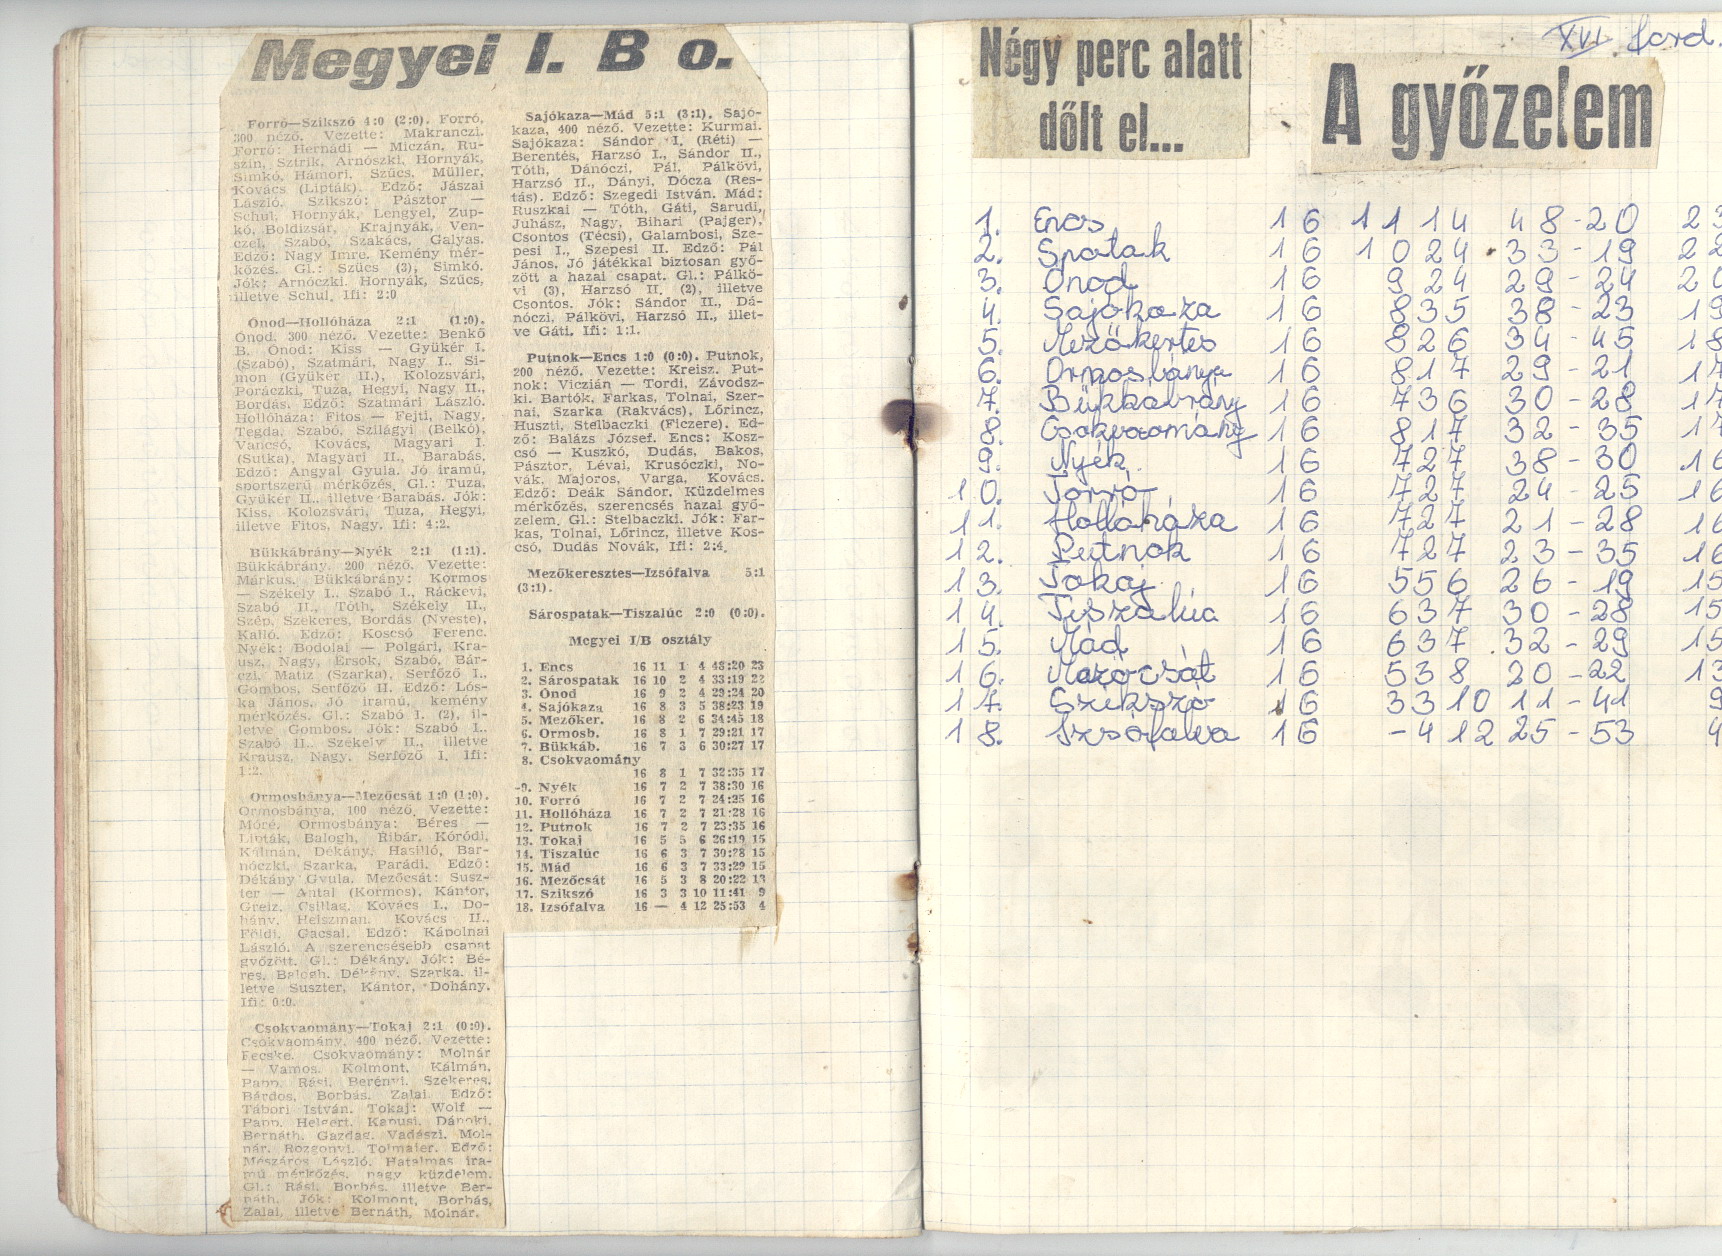 Megyei I. B o.
Forró—Szikszó 4:0 (2:0). Forró,
300 néző. Vezette: Makranczi.
Forró: Hernádi — Miczán, Ru-
szin, Sztrik, Arnószki, Hornyák,
Simkó, Hámori, Szűcs, Müller,
Kovács (Lipták). Edző: Jászai
László. Szikszó: Pásztor —
Schul, Hornyák, Lengyel, Zup-
kó, Boldizsár, Krajnyák, Ven-
czel, Szabó, Szakács, Galyas.
Edző: Nagy Imre. Kemény mér-
kőzés. Gl.: Szűcs (3), Simkó.
Jók: Arnóczki, Hornyák, Szűcs,
illetve Schul. Ifi: 2:0
Ónod—Hollóháza 2:1 (1:0).
Ónod, 300 néző. Vezette: Benkő
B. Ónod: Kiss — Gyükér I.
(Szabó), Szatmári, Nagy I., Si-
mon (Gyükér II.), Kolozsvári,
Poráczki, Tuza, Hegyi, Nagy II.,
Bordás. Edző: Szatmári László.
Hollóháza: Fitos — Fejti, Nagy,
Tegda, Szabó, Szilágyi (Belkó),
Vancsó, Kovács, Magyari I.
(Sutka), Magyari II., Barabás,
Edző: Angyal Gyula. Jó iramú,
sportszerű mérkőzés. Gl.: Tuza,
Gyükér II., illetve Barabás. Jók:
Kiss, Kolozsvári, Tuza, Hegyi,
illetve Fitos, Nagy. Ifi: 4:2.
Bükkábrány—Nyék 2:1 (1:1).
Bükkábrány, 200 néző. Vezette:
Márkus. Bükkábrány: Kormos
— Székely I., Szabó I., Ráckevi,
Szabó II., Tóth, Székely II.,
Szép, Szekeres, Bordás (Nyeste),
Kalló. Edző: Koscsó Ferenc.
Nyék: Bodolai — Polgári, Kra-
usz, Nagy, Érsok, Szabó, Bár-
czi, Matiz (Szarka), Serfőző I.,
Gombos, Serfőző II. Edző: Lós-
ka János. Jó iramú, kemény
mérkőzés. Gl.: Szabó I. (2), il-
letve Gombos. Jók: Szabó I.,
Szabó II., Székely II., illetve
Krausz, Nagy, Serfőző I. Ifi:
1:2.
Ormosbánya—Mezőcsát 1:0 (1:0).
Ormosbánya, 100 néző. Vezette:
Móré. Ormosbánya: Béres —
Lipták, Balogh, Ribár, Kóródi,
Kálmán, Dékány, Hasilló, Bar-
nóczki, Szarka, Parádi. Edző:
Dékány Gyula. Mezőcsát: Susz-
ter — Antal (Kormos), Kántor,
Greiz, Csillag, Kovács I., Do-
hány, Heiszman, Kovács II.,
Földi, Gacsal. Edző: Kápolnai
László. A szerencsésebb csapat
győzött. Gl.: Dékány. Jók: Bé-
res, Balogh, Dékány, Szarka, il-
letve Suszter, Kántor, Dohány.
Ifi: 0:0.
Csokvaomány—Tokaj 2:1 (0:0).
Csokvaomány, 400 néző. Vezette:
Fecske. Csokvaomány: Molnár
— Vamos, Kolmont, Kálmán,
Papp, Rási, Berényi, Szekeres,
Bárdos, Borbás, Zalai. Edző:
Tábori István. Tokaj: Wolf —
Papp, Helgert, Kapusi, Dánoki,
Bernáth, Gazdag, Vadászi, Mol-
nár, Rozgonyi, Tolmajer. Edző:
Mészáros László. Hatalmas ira-
mú mérkőzés, nagy küzdelem.
Gl.: Rási, Borbás, illetve Ber-
náth. Jók: Kolmont, Borbás,
Zalai, illetve Bernáth, Molnár.
Sajókaza—Mád 5:1 (3:1). Sajó-
kaza, 400 néző. Vezette: Kurmai.
Sajókaza: Sándor I. (Réti) —
Berentés, Harzsó I., Sándor II.,
Tóth, Dánóczi, Pál, Pálkövi,
Harzsó II., Dányi, Dócza (Res-
tás). Edző: Szegedi István. Mád:
Ruszkai — Tóth, Gáti, Sarudi,
Juhász, Nagy, Bihari (Pajger),
Csontos (Técsi), Galambosi, Sze-
pesi I., Szepesi II. Edző: Pál
János. Jó játékkal biztosan győ-
zött a hazai csapat. Gl.: Pálkö-
vi (3), Harzsó II. (2), illetve
Csontos. Jók: Sándor II., Dá-
nóczi, Pálkövi, Harzsó II., illet-
ve Gáti. Ifi: 1:1.
Putnok—Encs 1:0 (0:0). Putnok,
200 néző. Vezette: Kreisz. Put-
nok: Viczián — Tordi, Závodsz-
ki, Bartók, Farkas, Tolnai, Szer-
nai, Szarka (Rakvács), Lőrincz,
Huszti, Stelbaczki (Ficzere). Ed-
ző: Balázs József. Encs: Kosz-
csó — Kuszkó, Dudás, Bakos,
Pásztor, Lévai, Krusóczki, No-
vák, Majoros, Varga, Kovács.
Edző: Deák Sándor. Küzdelmes
mérkőzés, szerencsés hazai győ-
zelem. Gl.: Stelbaczki. Jók: Far-
kas, Tolnai, Lőrincz, illetve Kos-
csó, Dudás Novák, Ifi: 2:4.
Mezőkeresztes—Izsófalva 5:1
(3:1).
Sárospatak—Tiszalúc 2:0 (0:0).
Megyei I/B osztály
1. Encs 16 11 1 4 48:20 23
2. Sárospatak 16 10 2 4 33:19 22
3. Ónod 16 9 2 4 29:24 20
4. Sajókaza 16 8 3 5 38:23 19
5. Mezőker. 16 8 2 6 34:45 18
6. Ormosb. 16 8 1 7 29:21 17
7. Bükkáb. 16 7 3 6 30:27 17
8. Csokvaomány
16 8 1 7 32:35 17
9. Nyék 16 7 2 7 38:30 16
10. Forró 16 7 2 7 24:25 16
11. Hollóháza 16 7 2 7 21:28 16
12. Putnok 16 7 2 7 23:35 16
13. Tokaj 16 5 5 6 26:19 15
14. Tiszalúc 16 6 3 7 30:28 15
15. Mád 16 6 3 7 33:29 15
16. Mezőcsát 16 5 3 8 20:22 13
17. Szikszó 16 3 3 10 11:41 9
18. Izsófalva 16 — 4 12 25:53 4
Négy perc alatt
dőlt el...
XVI ford.
A győzelem
1. Encs 16 11 1 4 48-20 23
2. Spatak 16 10 2 4 33-19 22
3. Ónod 16 9 2 4 29-24 20
4. Sajókaza 16 8 3 5 38-23 19
5. Mezőkertes 16 8 2 6 34-45 18
6. Ormosbánya 16 8 1 7 29-21 17
7. Bükkábrány 16 7 3 6 30-28 17
8. Csokvaomány 16 8 1 7 32-35 17
9. Nyék 16 7 2 7 38-30 16
10. Forró 16 7 2 7 24-25 16
11. Hollóháza 16 7 2 7 21-28 16
12. Putnok 16 7 2 7 23-35 16
13. Tokaj 16 5 5 6 26-19 15
14. Tiszalúc 16 6 3 7 30-28 15
15. Mád 16 6 3 7 32-29 15
16. Mezőcsát 16 5 3 8 20-22 13
17. Szikszó 16 3 3 10 11-41 9
18. Izsófalva 16 - 4 12 25-53 4